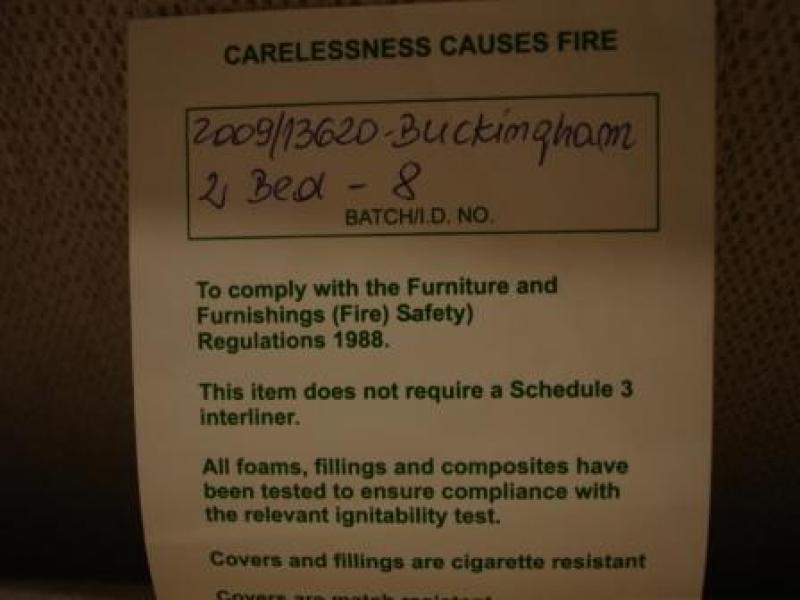 CARELESSNESS CAUSES FIRE
2009/13620-Buckingham
2 Bed - 8
BATCH/I.D. NO.
To comply with the Furniture and
Furnishings (Fire) Safety)
Regulations 1988.
This item does not require a Schedule 3
interliner.
All foams, fillings and composites have
been tested to ensure compliance with
the relevant ignitability test.
Covers and fillings are cigarette resistant
Covers are match resistant